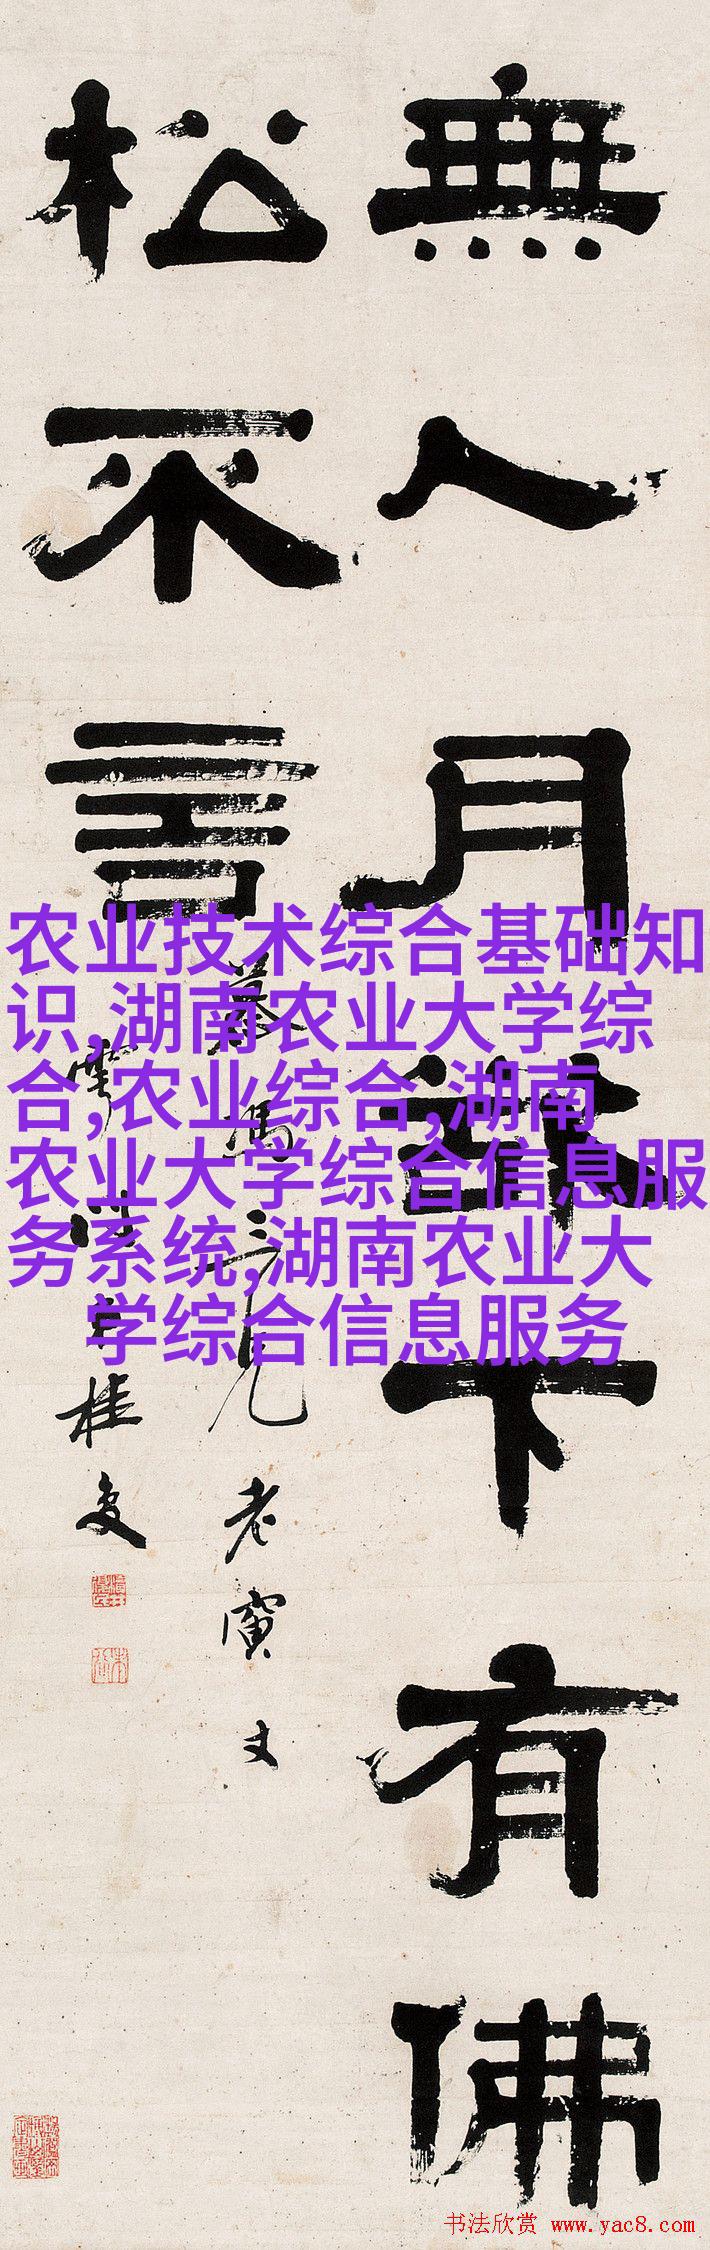 無人月下有佛
松不言
三兄老
桂
农业技术综合基础知
识,湖南农业大学综
合,农业综合,湖南
农业大学综合信息服
务系统,湖南农业大
学综合信息服务
书法欣赏 www.yac8.com